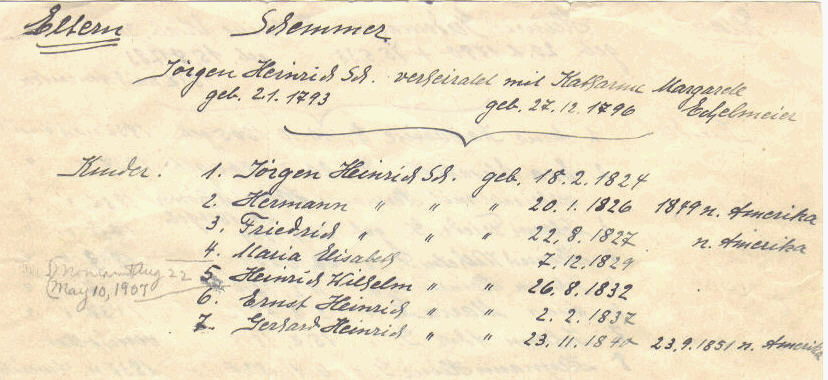 Eltern Schemmer
Jörgen Heinrich Sch. verheiratet mit Katharine Margarete
geb. 2.1. 1793 geb. 27.12.1796 Echelmeier
Kinder: 1. Jörgen Heinrich Sch. geb. 18.2.1824
2. Hermann " " " 20.1.1826 1849 n. Amerika
3. Friedrich " " " 22.8.1827 n. Amerika
4. Maria Elisabeth 7.12.1829
Aug 22
5. Heinrich Wilhelm " " 26.8.1832
May 10, 1907
6. Ernst Heinrich " " 2.2.1837
7. Gerhard Heinrich " " 23.11.1840 23.9.1851 n. Amerika